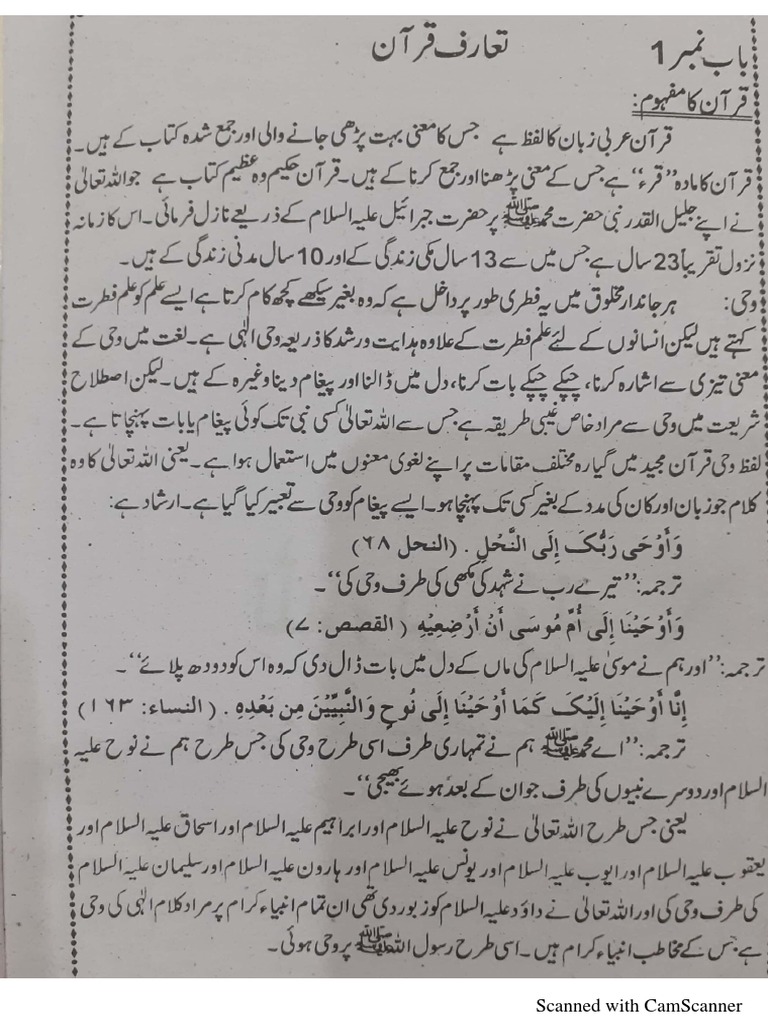 باب نمبر 1 تعارف قرآن
قرآن کا مفہوم:
قرآن عربی زبان کا لفظ ہے جس کا معنی بہت پڑھی جانے والی اور جمع شدہ کتاب کے ہیں۔
قرآن کا مادہ ”قرء“ ہے جس کے معنی پڑھنا اور جمع کرنا کے ہیں۔ قرآن حکیم وہ عظیم کتاب ہے جو اللہ تعالیٰ
نے اپنے جلیل القدر نبی حضرت محمدﷺ پر حضرت جبرائیل علیہ السلام کے ذریعے نازل فرمائی۔ اس کا زمانہ
نزول تقریباً 23 سال ہے جس میں سے 13 سال مکی زندگی کے اور 10 سال مدنی زندگی کے ہیں۔
وحی: ہر جاندار مخلوق میں یہ فطری طور پر داخل ہے کہ وہ بغیر سیکھے کچھ کام کرتا ہے ایسے علم کو علم فطرت
کہتے ہیں لیکن انسانوں کے لئے علم فطرت کے علاوہ ہدایت ورشد کا ذریعہ وحی الٰہی ہے۔ لغت میں وحی کے
معنی تیزی سے اشارہ کرنا، چپکے چپکے بات کرنا، دل میں ڈالنا اور پیغام دینا وغیرہ کے ہیں۔ لیکن اصطلاح
شریعت میں وحی سے مراد خاص غیبی طریقہ ہے جس سے اللہ تعالیٰ کسی نبی تک کوئی پیغام یا بات پہنچاتا ہے۔
لفظ وحی قرآن مجید میں گیارہ مختلف مقامات پر اپنے لغوی معنوں میں استعمال ہوا ہے۔ یعنی اللہ تعالیٰ کا وہ
کلام جو زبان اور کان کی مدد کے بغیر کسی تک پہنچا ہو۔ ایسے پیغام کو وحی سے تعبیر کیا گیا ہے۔ ارشاد ہے:
وَأَوْحَى رَبُّکَ إِلَى النَّحْلِ . (النحل ٦٨)
ترجمہ: ”تیرے رب نے شہد کی مکھی کی طرف وحی کی“۔
وَأَوْحَيْنَا إِلَى أُمِّ مُوسَى أَنْ أَرْضِعِيْهِ ( القصص: ٧)
ترجمہ: ”اور ہم نے موسیٰ علیہ السلام کی ماں کے دل میں بات ڈال دی کہ وہ اس کو دودھ پلائے“۔
إِنَّا أَوْحَيْنَا إِلَيْکَ كَمَا أَوْحَيْنَا إِلَى نُوحٍ وَالنَّبِيِّيْنَ مِن بَعْدِهِ . ( النساء: ١٦٣)
ترجمہ: ”اے محمدﷺ ہم نے تمہاری طرف اسی طرح وحی کی جس طرح ہم نے نوح علیہ
السلام اور دوسرے نبیوں کی طرف جو ان کے بعد ہوئے بھیجی“۔
یعنی جس طرح اللہ تعالیٰ نے نوح علیہ السلام اور ابراہیم علیہ السلام اور اسحاق علیہ السلام اور
یعقوب علیہ السلام اور ایوب علیہ السلام اور یونس علیہ السلام اور ہارون علیہ السلام اور سلیمان علیہ السلام
کی طرف وحی کی اور اللہ تعالیٰ نے داؤد علیہ السلام کو زبور دی تھی ان تمام انبیاء کرام پر مراد کلام الٰہی کی وحی
ہے جس کے مخاطب انبیاء کرام ہیں۔ اسی طرح رسول اللہﷺ پر وحی ہوئی۔
Scanned with CamScanner